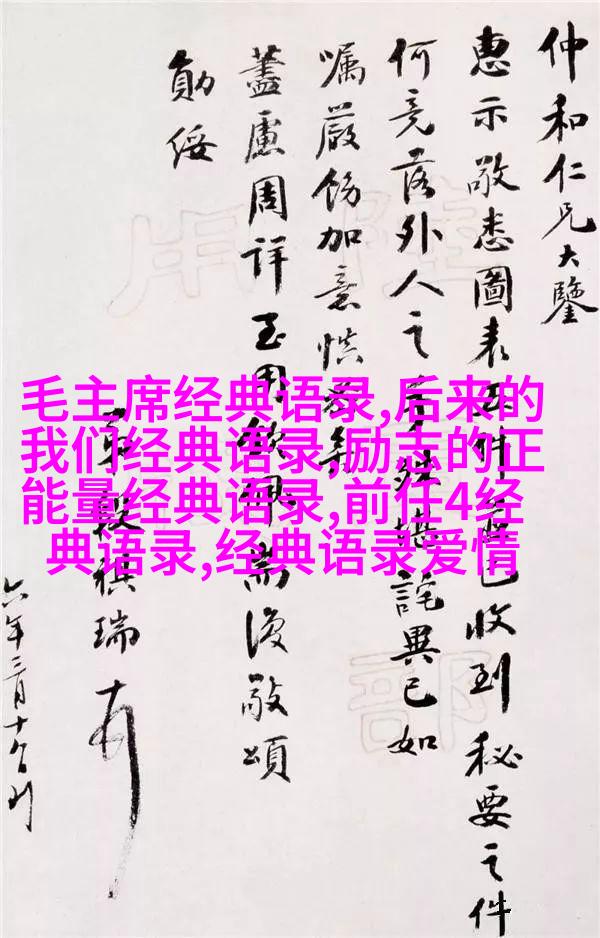 仲和仁兄大鑒
惠示敬悉圖表五件已收到秘要之件
何竟落外人之手殊堪詫異已如
囑嚴飭加意慎
藎慮周詳至用欽佩耑復敬頌
勛綏
弟段祺瑞
六年三月十日
毛主席经典语录,后来的
我们经典语录,励志的正
能量经典语录,前任4经
典语录,经典语录爱情